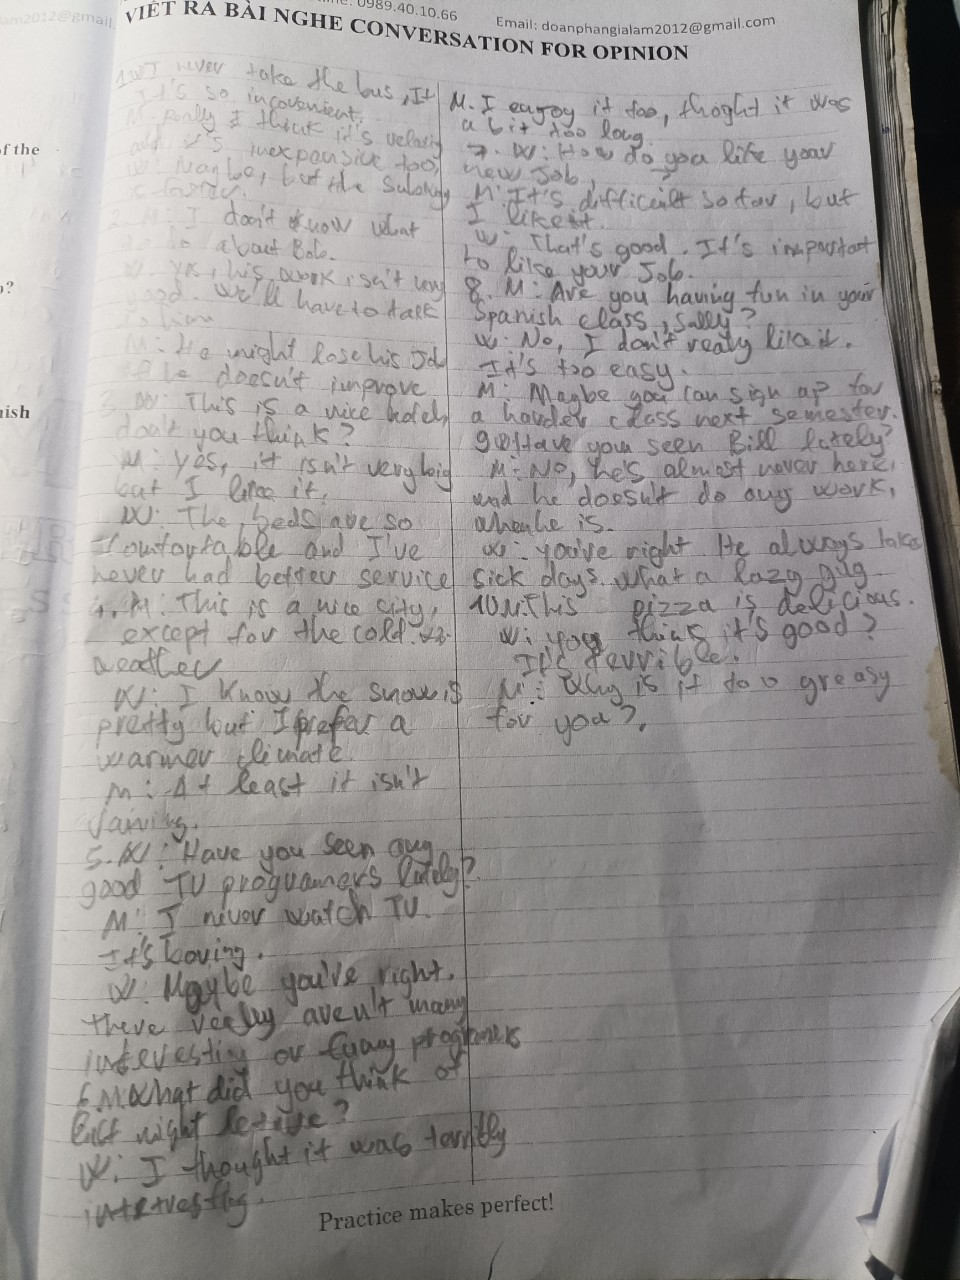 am2012@gmail.
0989.40.10.66
Email: doanphangialam2012@gmail.com
VIẾT RA BÀI NGHE CONVERSATION FOR OPINION
f the
?
nish
never take the bus, It
It's so inconvenient.
M. Really I think it's
inexpansive too,
W: Maybe, but the Subway
2. M: I don't know what
to do about Bob.
W. yes, his work isn't very
good. We'll have to talk
to him
M: He might lose his Job
if he doesn't improve
3. W: This is a nice hotel,
don't you think?
M: yes, it isn't very big
but I like it.
W: The beds are so
Comfortable and I've
never had better service
4. M: This is a nice city,
except for the cold.
weather
W: I know the snow is
pretty but I prefer a
warmer climate.
M: At least it isn't
raining.
5. W: Have you seen any
good TV programmers lately?
M: I never watch TV.
It's boring.
W: Maybe you're right.
there really aren't many
interesting or funny programers
6. M: What did you think of
last night
W: I thought it was
M. I enjoy it too, thoght it was
a bit too long.
7. W: How do you like your
new Job,
M: It's difficult so far, but
I like it.
W: That's good. It's important
to like your Job.
8. M: Are you having fun in your
Spanish class, Sally?
W: No, I don't realy like it.
It's too easy.
M: Maybe you can sign up for
a harder class next semester.
9. W: Have you seen Bill lately?
M: No, he's almost never here,
and he doesn't do any work,
when he is.
W: you're right He always take
sick days. what a lazy guy
10. M: This pizza is delicious.
W: you think it's good?
It's terrible.
M: Why is it too greasy
for you?,
Practice makes perfect!